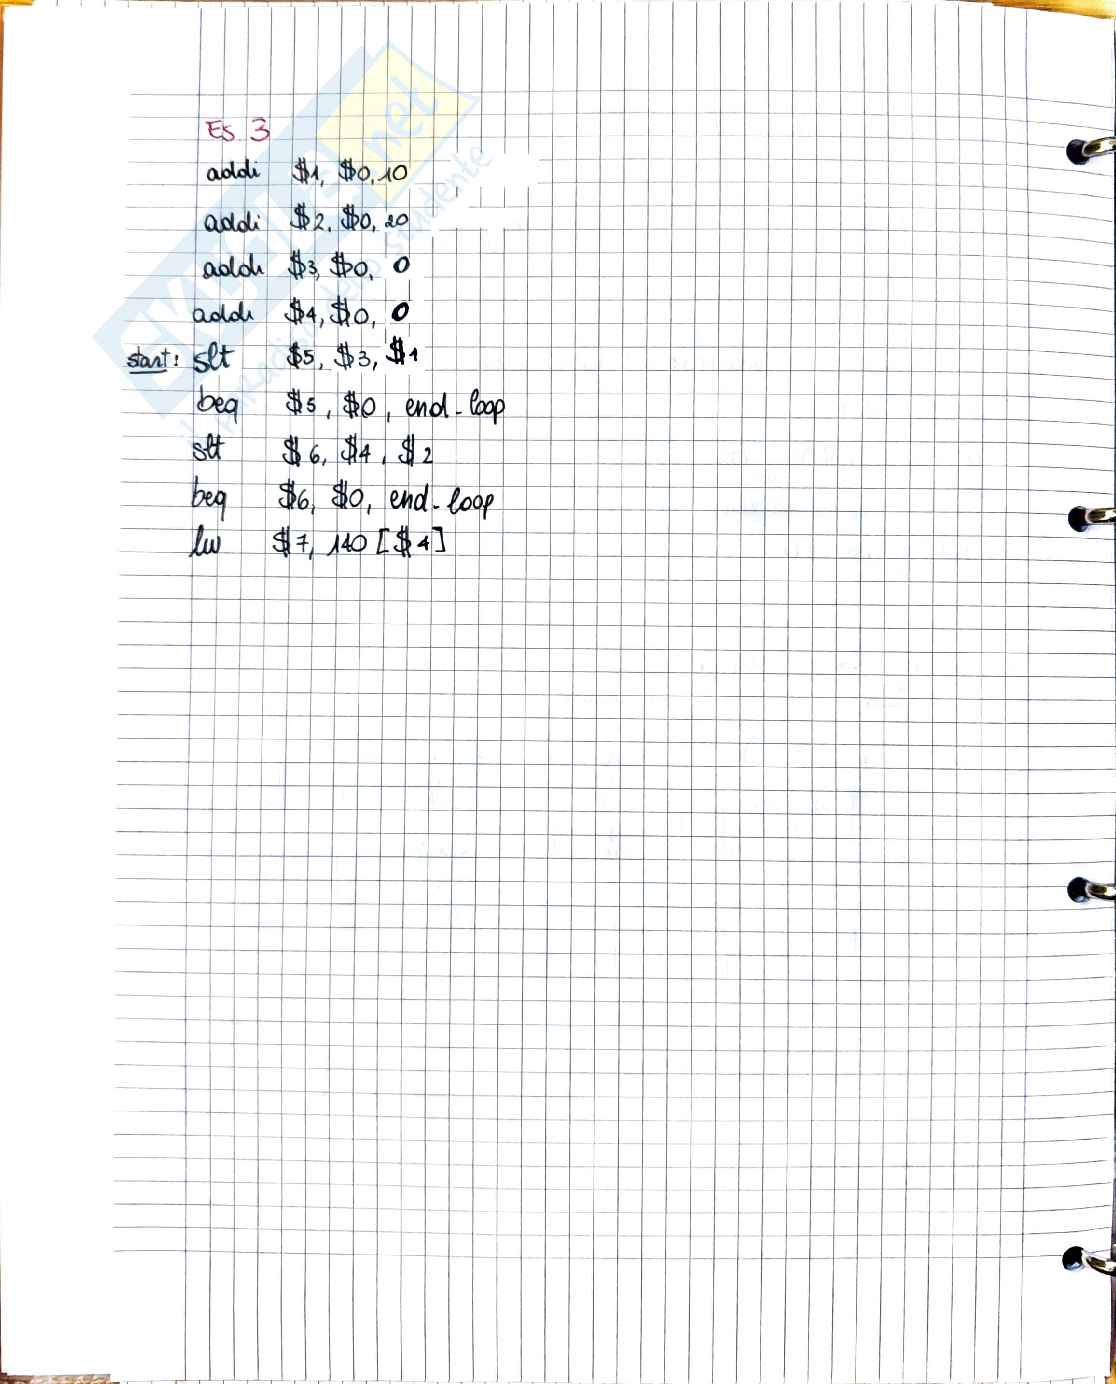 Es. 3
addi $1, $0, 10
addi $2, $0, 20
addi $3, $0, 0
addi $4, $0, 0
start: slt $5, $3, $1
beq $5, $0, end-loop
slt $6, $4, $2
beq $6, $0, end-loop
lw $7, 140 [$4]
SKUOLA.net